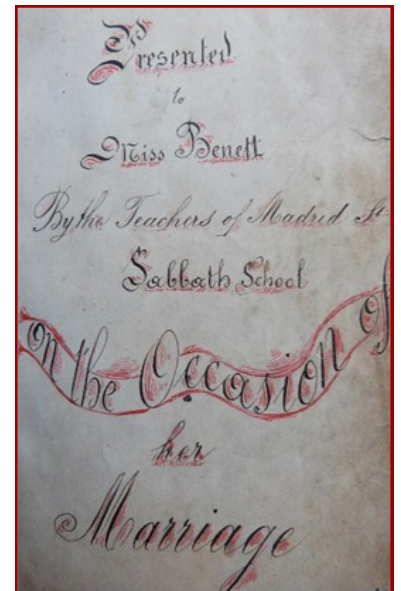 Presented
to
Miss Benett
By the Teachers of Madrid St
Sabbath School
on the Occasion of
her
Marriage